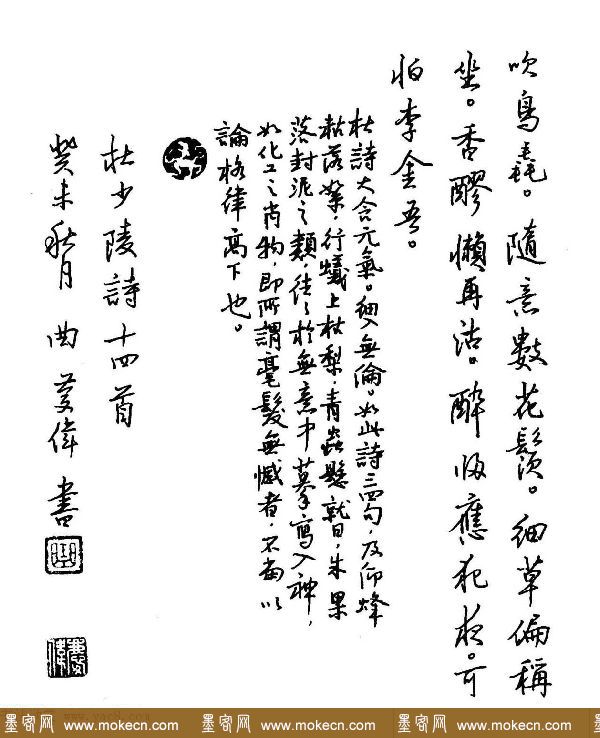 吹鳥毳。隨意數花鬚。細草偏稱
坐。香醪懶再沽。醉歸應犯夜。可
怕李金吾。
杜詩大含元氣。細入無倫。如此詩三四句,及仰蜂
粘落絮,行蟻上枯梨,青蟲懸就日,朱果
落封泥之類,往往於無意中摹寫入神,
如化工之肖物,即所謂毫髮無憾者,不當以
論格律高下也。
杜少陵詩十四首
癸未秋月 曲慶偉書
墨客网 www.mokecn.com 墨客网 www.mokecn.com 墨客网 www.mokecn.com